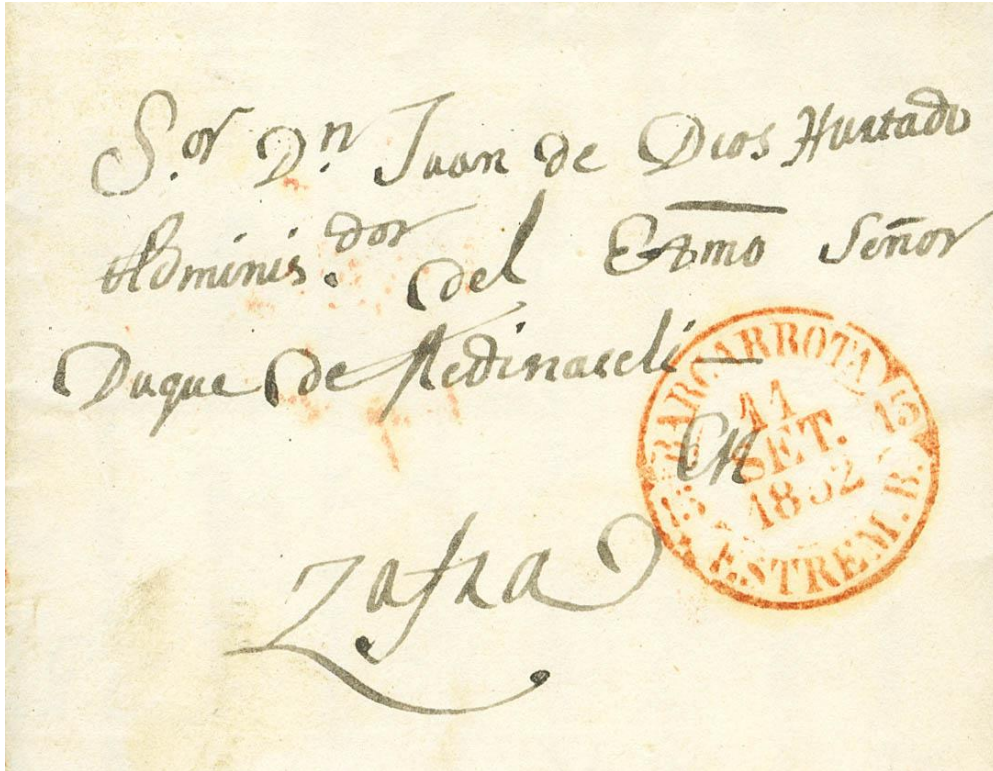 S.or D.n Juan de Dios Hurtado
Adminis.dor del Exmo Señor
Duque de Medinaceli
en
Zafra
BARCARROTA
11
SET.
1852
ESTREM. B.